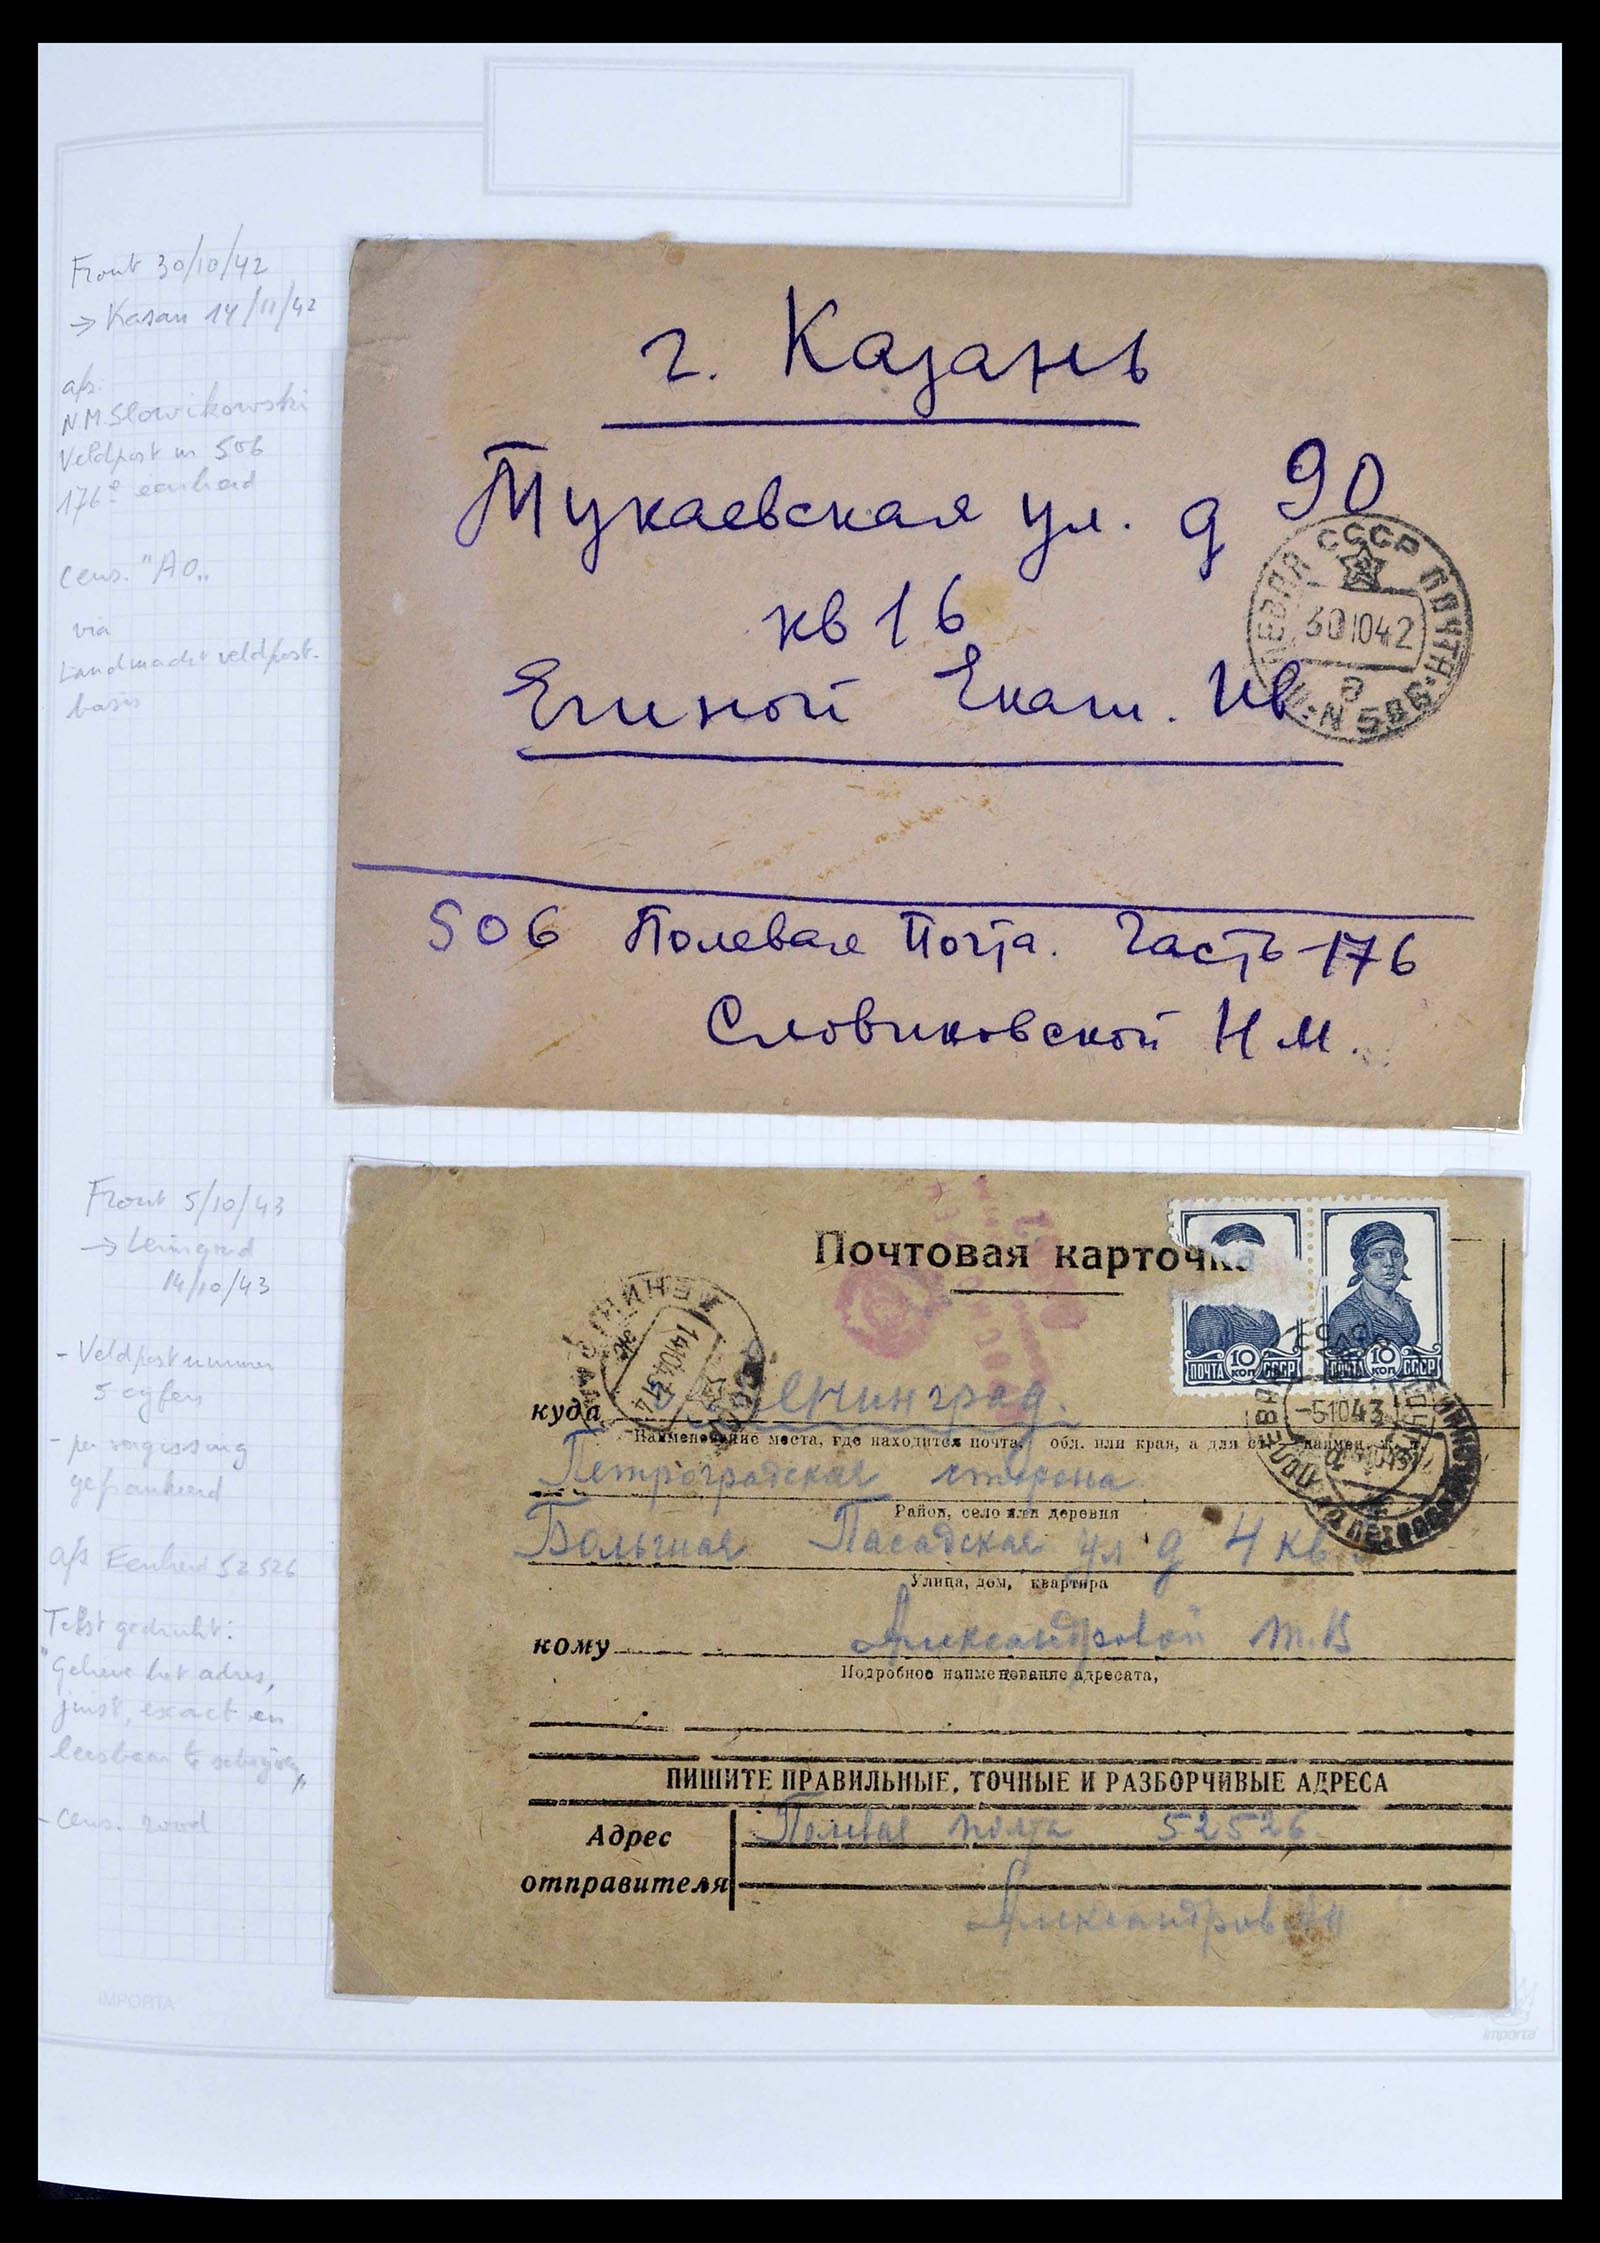 Front 30/10/42
→ Kasan 14/11/42
afz.
N.M. Slowikowski
Veldpost nr 506
176e eenheid
cens. "AO"
via
Landmacht veldpost-
basis
г. Казань
Тукаевская ул. д 90
кв 16
Егиной Екат. Ив
СССР
301042
506 Полевая Почта. Часть-176
Словиковской Н М.
Front 5/10/43
→ Leningrad
14/10/43
- Veldpostnummer
5 cijfers
- per vergissing
gefrankeerd
afz Eenheid 52526
Tekst gedrukt:
"Gelieve het adres,
juist, exact en
leesbaar te schrijven"
- Cens. rood
Почтовая карточка
ПОЧТА 10 КОП СССР
ПОЧТА 10 КОП СССР
-51043
куда Ленинград.
Наименование места, где находится почта, обл. или край, а для ст. наимен. ж. д.
Петроградская сторона
Район, село или деревня
Большая Пасадская ул д 4 кв
Улица, дом, квартира
кому Александровой Т. В
Подробное наименование адресата,
ПИШИТЕ ПРАВИЛЬНЫЕ, ТОЧНЫЕ И РАЗБОРЧИВЫЕ АДРЕСА
Адрес
отправителя
Полевая почта 52526.
Александров
IMPORTA
importa